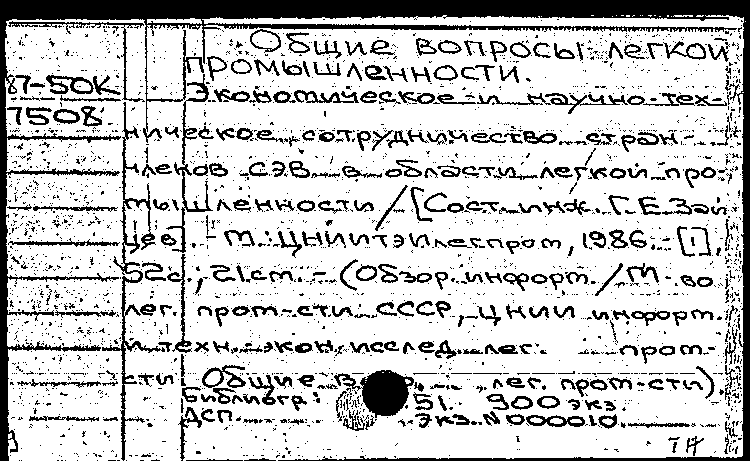 Общие вопросы легкой
промышленности.
87-50К Экономическое и научно-тех-
7508
ническое сотрудничество стран-
членов СЭВ в области легкой про-
мышленности / [Сост. инж. Г.Е. Зай
цев]. - М.: ЦНИИТЭИлегпром, 1986. - [1],
52с.; 21 см. - (Обзор. информ. / М-во
лег. пром-сти СССР, ЦНИИ информ.
и техн.-экон. исслед. лег. пром-
сти. Общие лег. пром-сти).
Библиогр.: 51. 900 экз.
ДСП. Экз. N 000010.